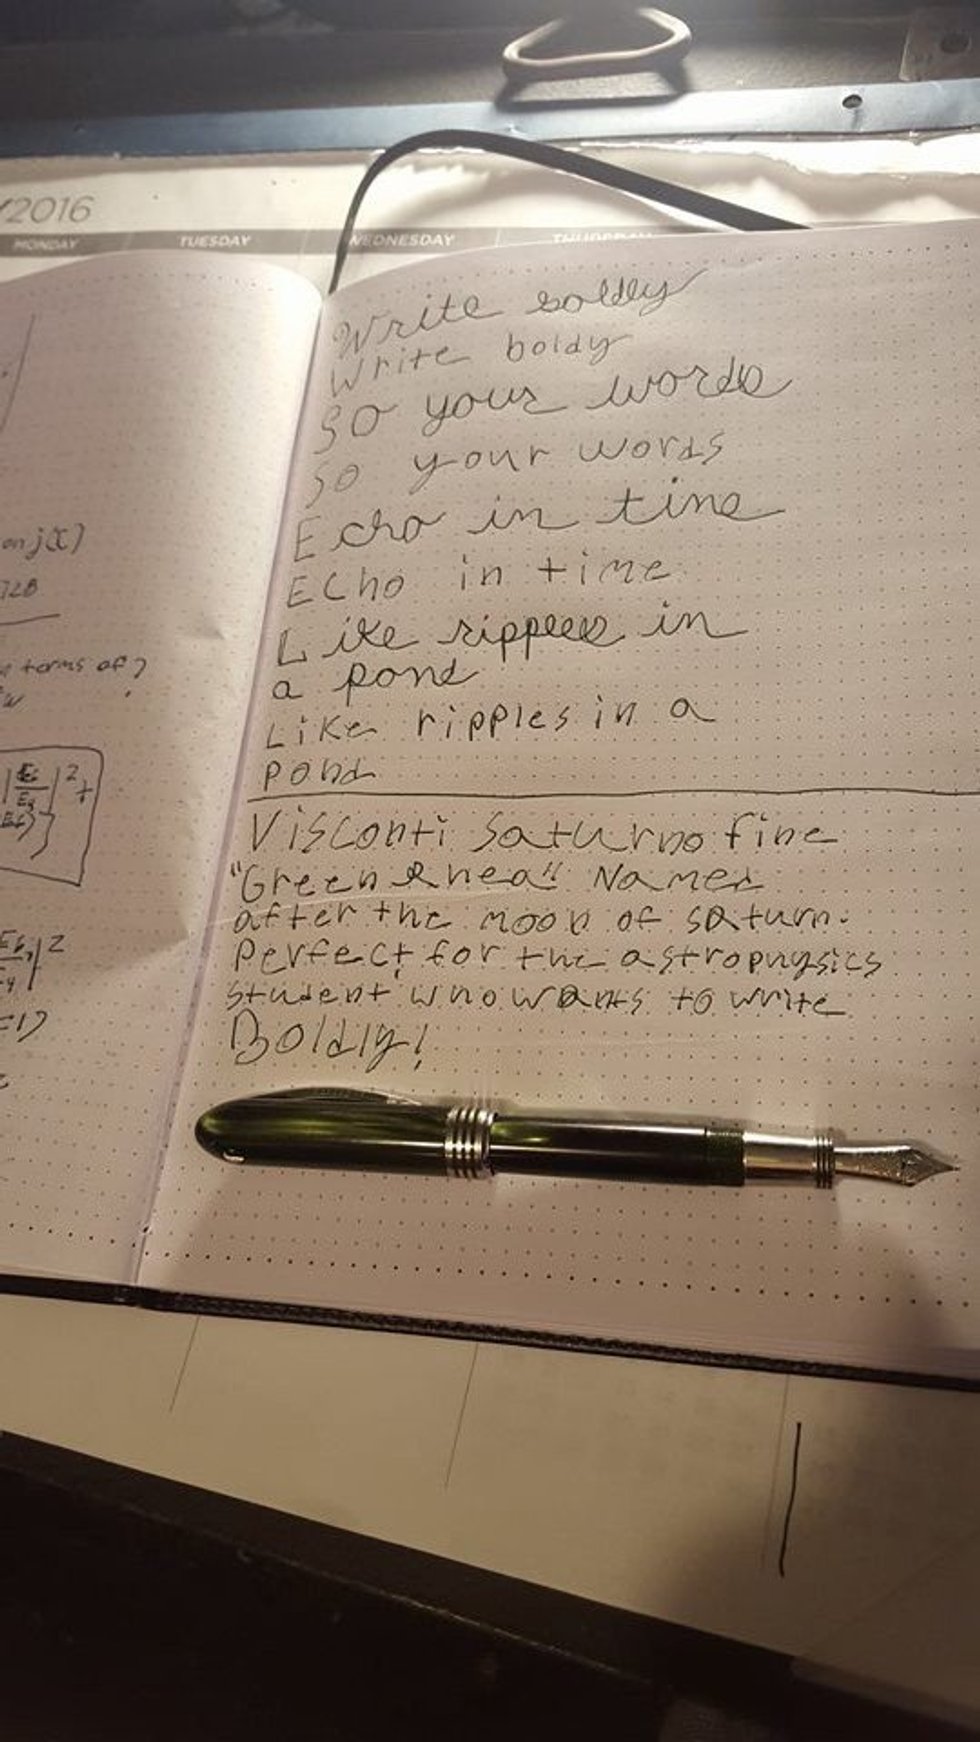 2016
MONDAY TUESDAY WEDNESDAY THURSDAY
Write boldly
Write boldy
So your words
So your words
Echo in time
Echo in time
Like ripples in
a pond
Like ripples in a
pond
Visconti Saturno fine
"Green Rhea" Named
after the moon of saturn.
Perfect for the astrophysics
student who wants to write
Boldly!
on j(x)
72B
terms of ?